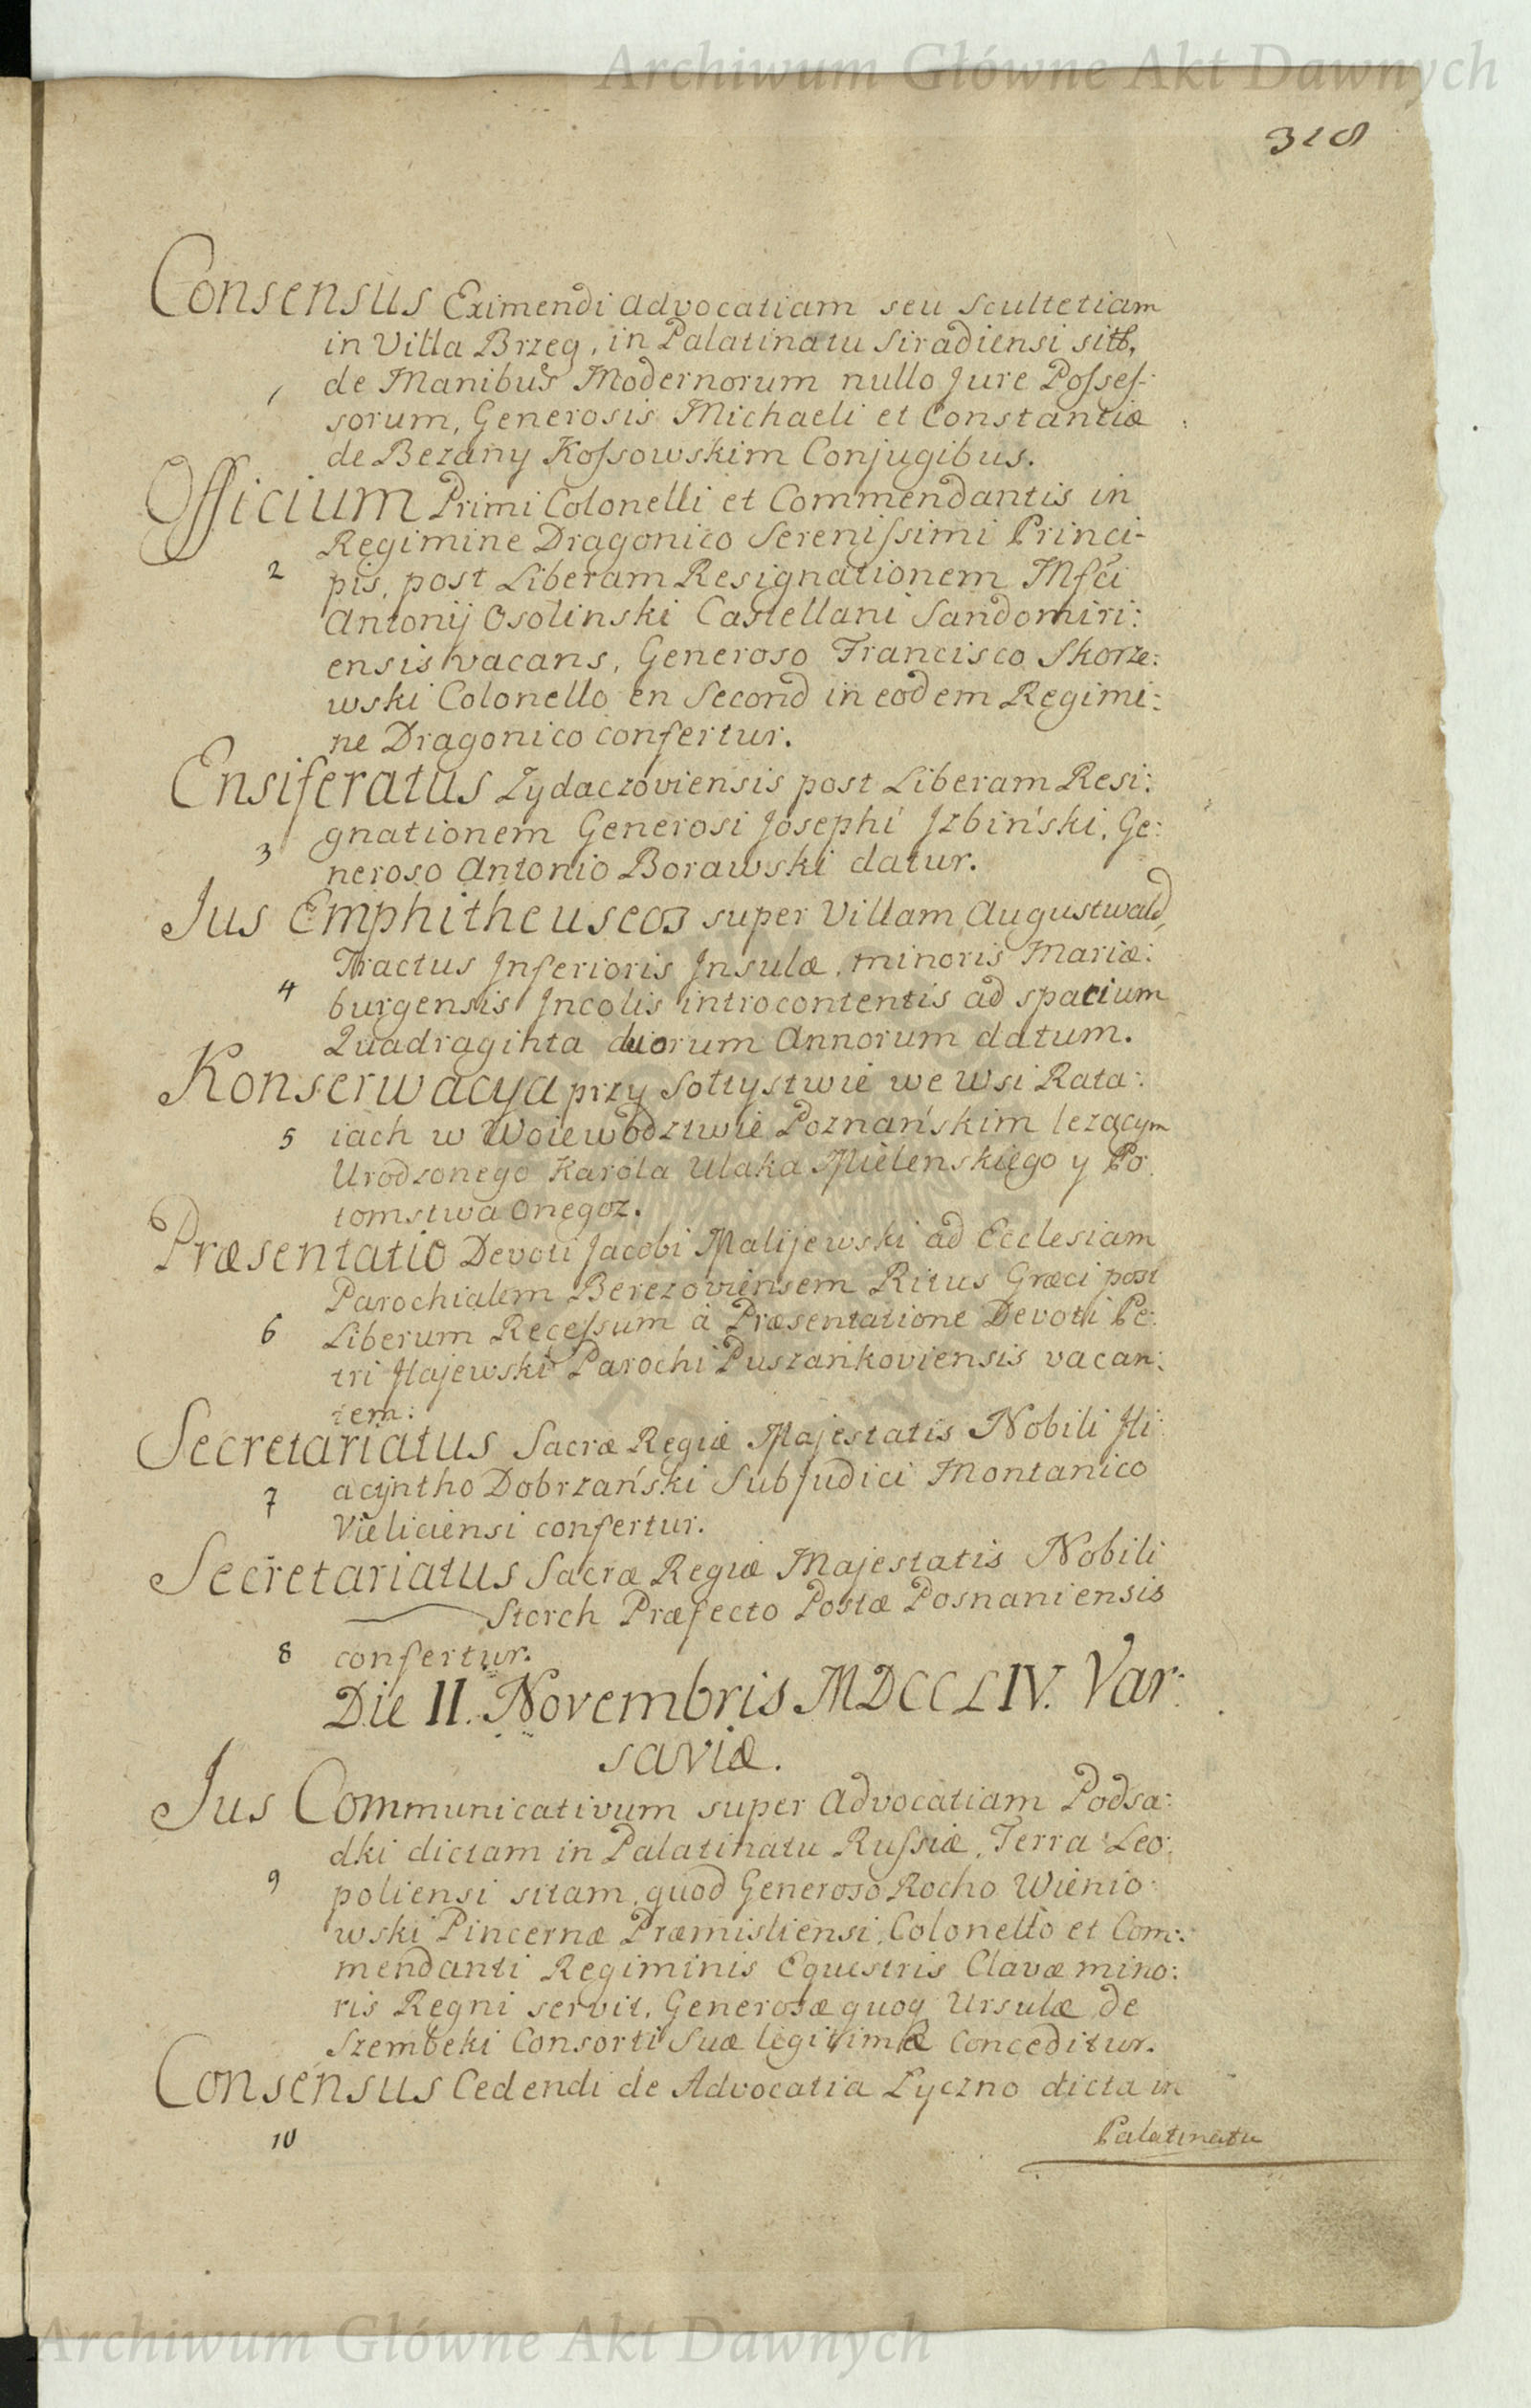 Archiwum Główne Akt Dawnych
318
Consensus Eximendi Advocatiam seu Scultetiam
in Villa Brzeg, in Palatinatu Siradiensi sit,
1 de Manibus Modernorum nullo Jure Posses-
sorum, Generosis Michaeli et Constantiæ
de Bezany Kossowskim Conjugibus.
Officium Primi Colonelli et Commendantis in
Regimine Dragonico Serenissimi Princi-
2 pis, post Liberam Resignationem Mfci
Antonij Osolinski Castellani Sandomiri:
ensis vacans, Generoso Francisco Skorze:
wski Colonello en Second in eodem Regimi:
ne Dragonico confertur.
Ensiferatus Zydaczoviensis post Liberam Resi:
gnationem Generosi Josephi Jzbiński, Ge:
3 neroso Antonio Borawski datur.
Jus Emphitheuseos super Villam Augustwald,
Tractus Jnferioris Jnsulæ, minoris Mariæ:
4 burgensis Jncolis introcontentis ad spatium
Quadraginta duorum Annorum datum.
Konserwacya przy Sołtystwie we Wsi Rata:
5 iach w Woiewodztwie Poznańskim lezącym
Urodzonego Karola Ulaka Mielenskiego y Po
tomstwa onegoz.
Præsentatio Devoti Jacobi Malijewski ad Ecclesiam
Parochialem Berezoviensem Ritus Græci post
6 Liberum Recessum à Præsentatione Devoti Pe:
tri Hajewski Parochi Puszańkoviensis vacan:
tem:
Secretariatus Sacræ Regiæ Majestatis Nobili Hi
acyntho Dobrzański Subjudici Montanico
7 Vieliciensi confertur.
Secretariatus Sacræ Regiæ Majestatis Nobili
Storch Præfecto Postæ Posnaniensis
8 confertur.
Die II. Novembris MDCCLIV. Var:
saviæ.
Jus Communicativum super Advocatiam Podsa:
dki dictam in Palatinatu Russiæ, Terra Leo:
9 poliensi sitam, quod Generoso Rocho Wienio
wski Pincernæ Præmisliensi, Colonello et Com:
mendanti Regiminis Equestris Clavæ mino:
ris Regni servit, Generosæ quoq Ursulæ de
Szembeki Consorti Suæ legitimæ Conceditur.
Consensus Cedendi de Advocatia Łyczno dicta in
10
Palatinatu
Archiwum Główne Akt Dawnych